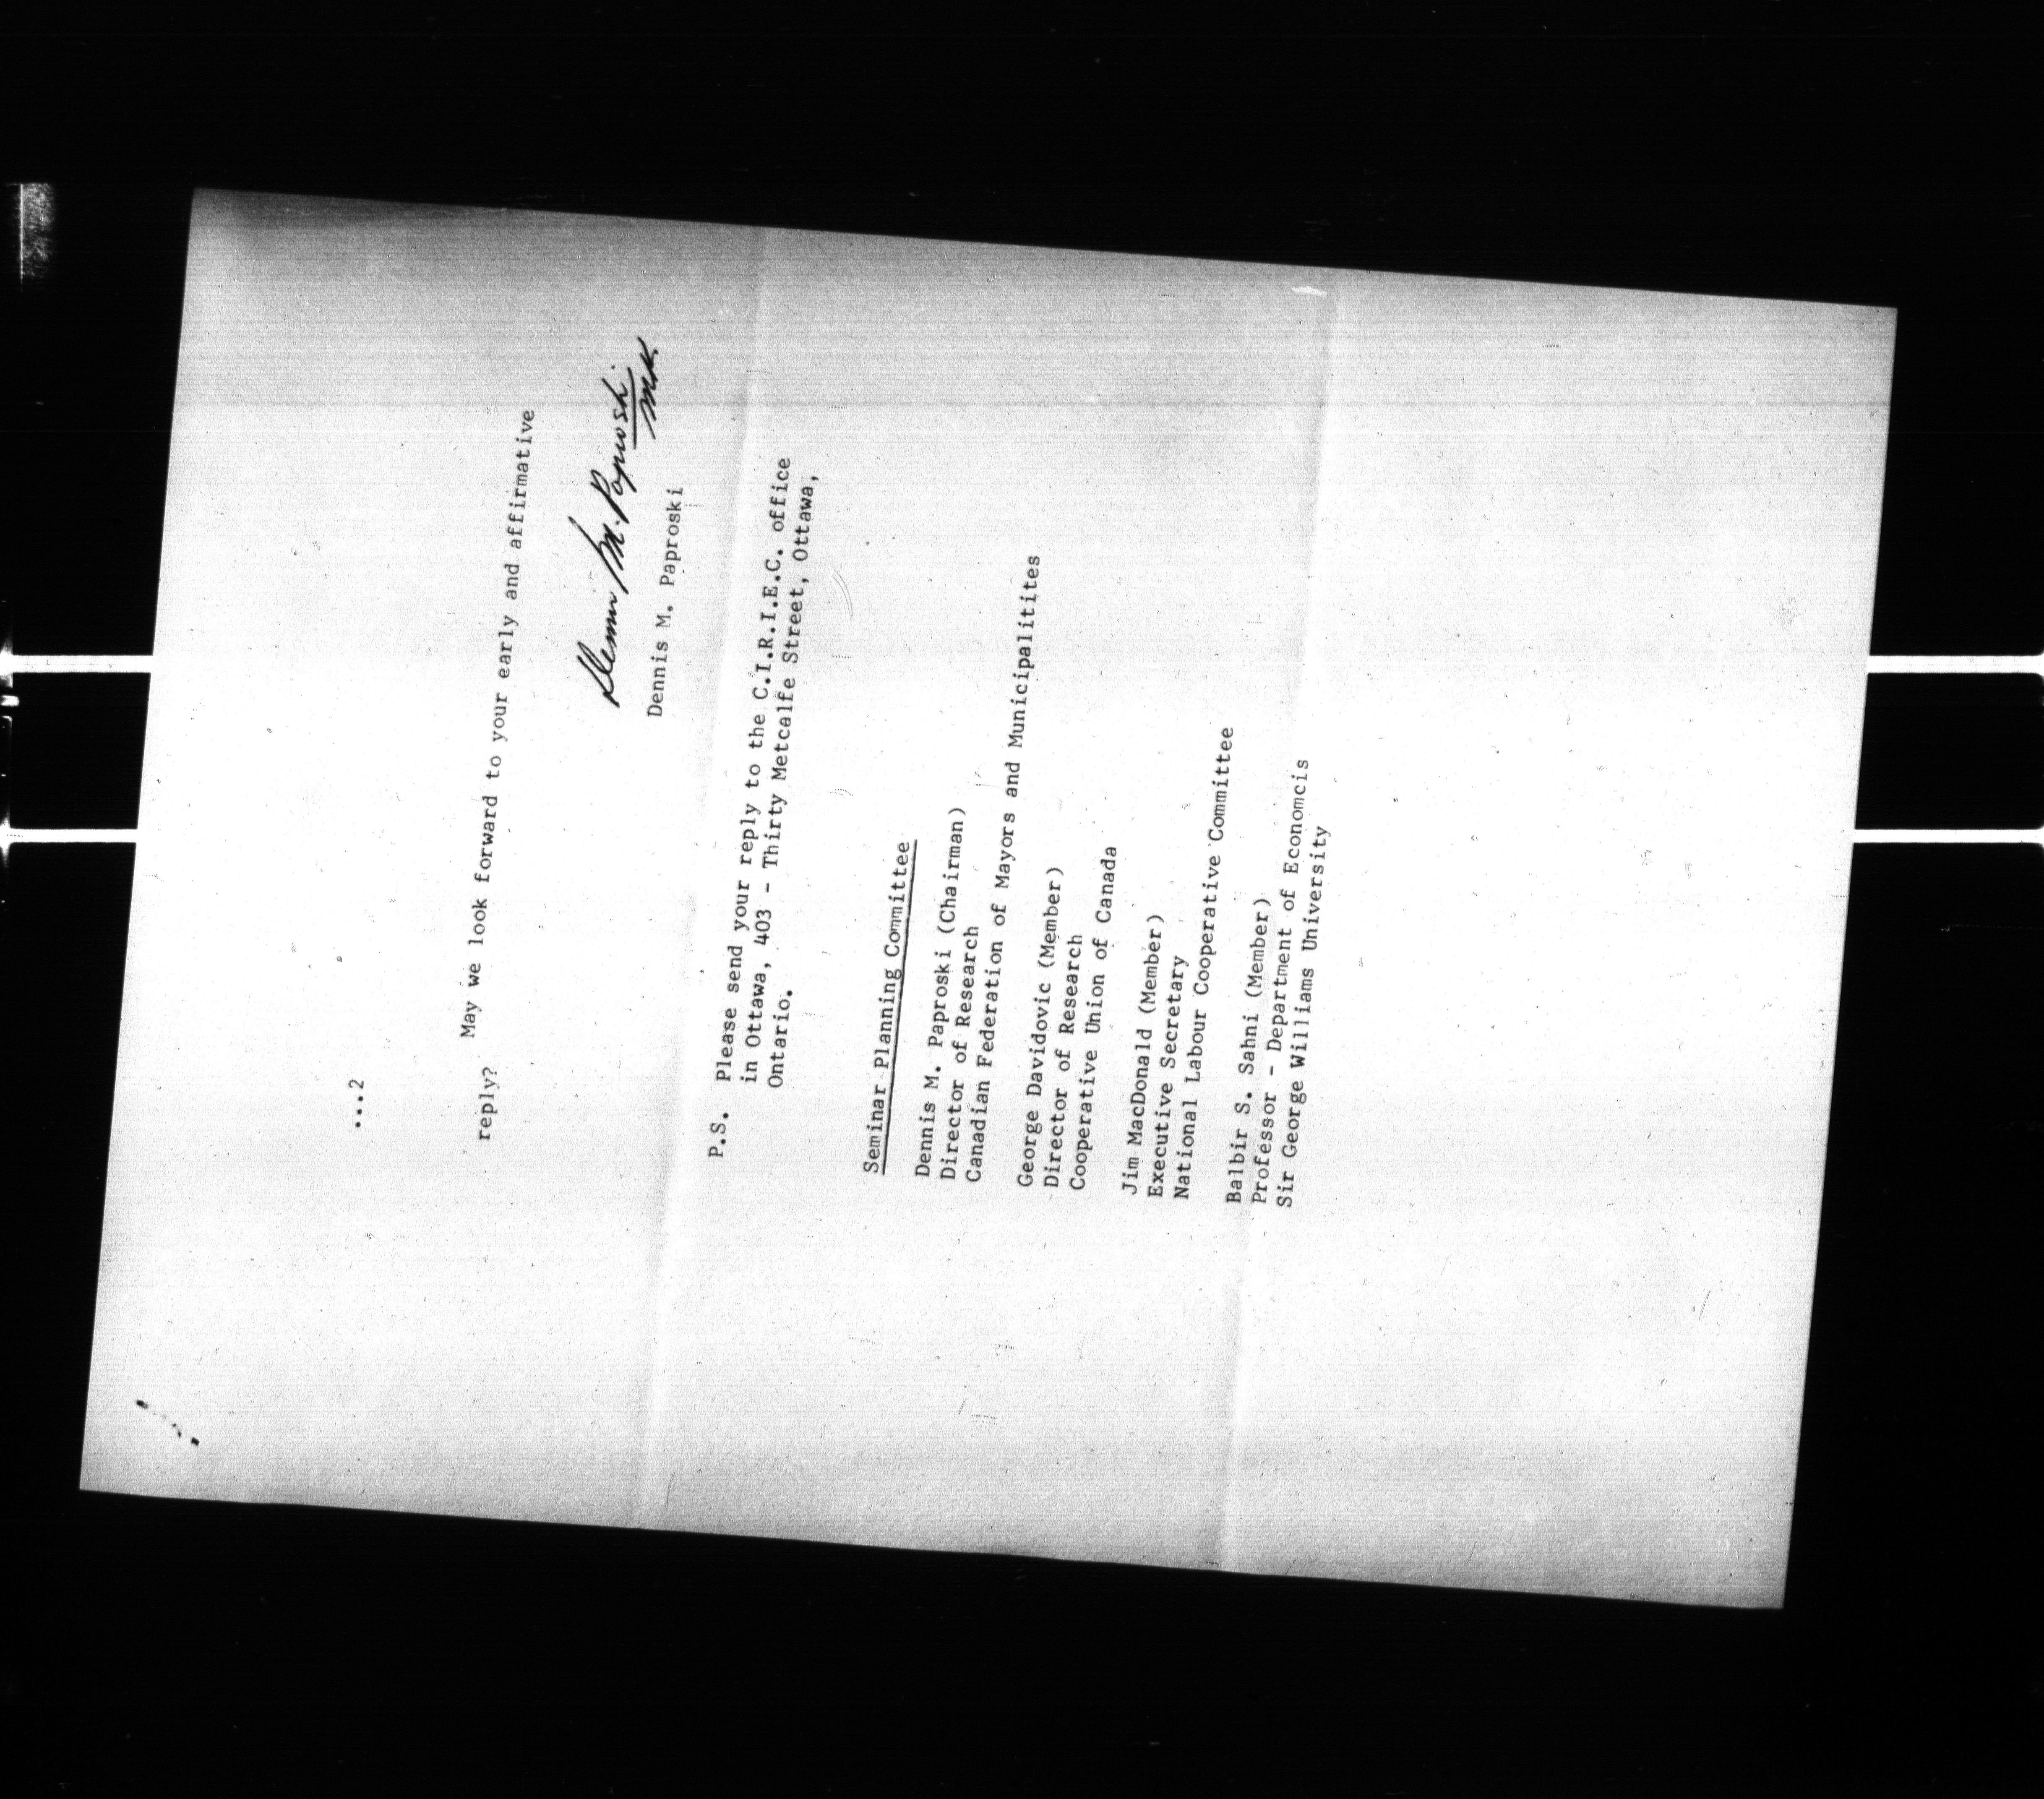 ...2
May we look forward to your early and affirmative
reply?
Dennis M. Paproski
Dennis M. Paproski
P.S. Please send your reply to the C.I.R.I.E.C. office
in Ottawa, 403 - Thirty Metcalfe Street, Ottawa,
Ontario.
Seminar Planning Committee
Dennis M. Paproski (Chairman)
Director of Research
Canadian Federation of Mayors and Municipalitites
George Davidovic (Member)
Director of Research
Cooperative Union of Canada
Jim MacDonald (Member)
Executive Secretary
National Labour Cooperative Committee
Balbir S. Sahni (Member)
Professor - Department of Economcis
Sir George Williams University